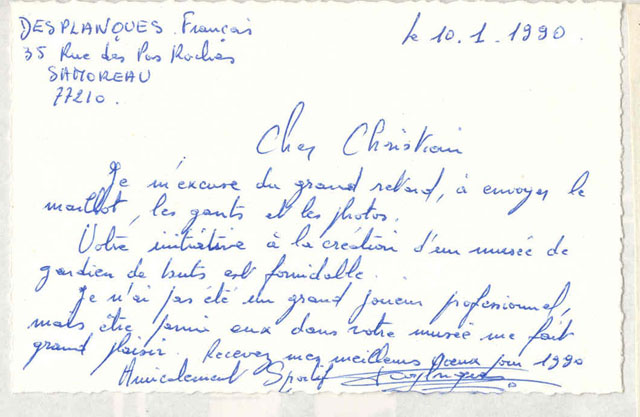 DESPLANQUES Français
35 Rue des Pas Roches
SAMOREAU
77210.
le 10.1.1990.
Cher Christian
Je m'excuse du grand retard, à envoyer le
maillot, les gants et les photos.
Votre initiative à la création d'un musée de
gardien de buts est formidable.
Je n'ai pas été un grand joueur professionnel,
mais être parmi eux dans votre musée me fait
grand plaisir. Recevez mes meilleurs voeux pour 1990
Amicalement Sportif